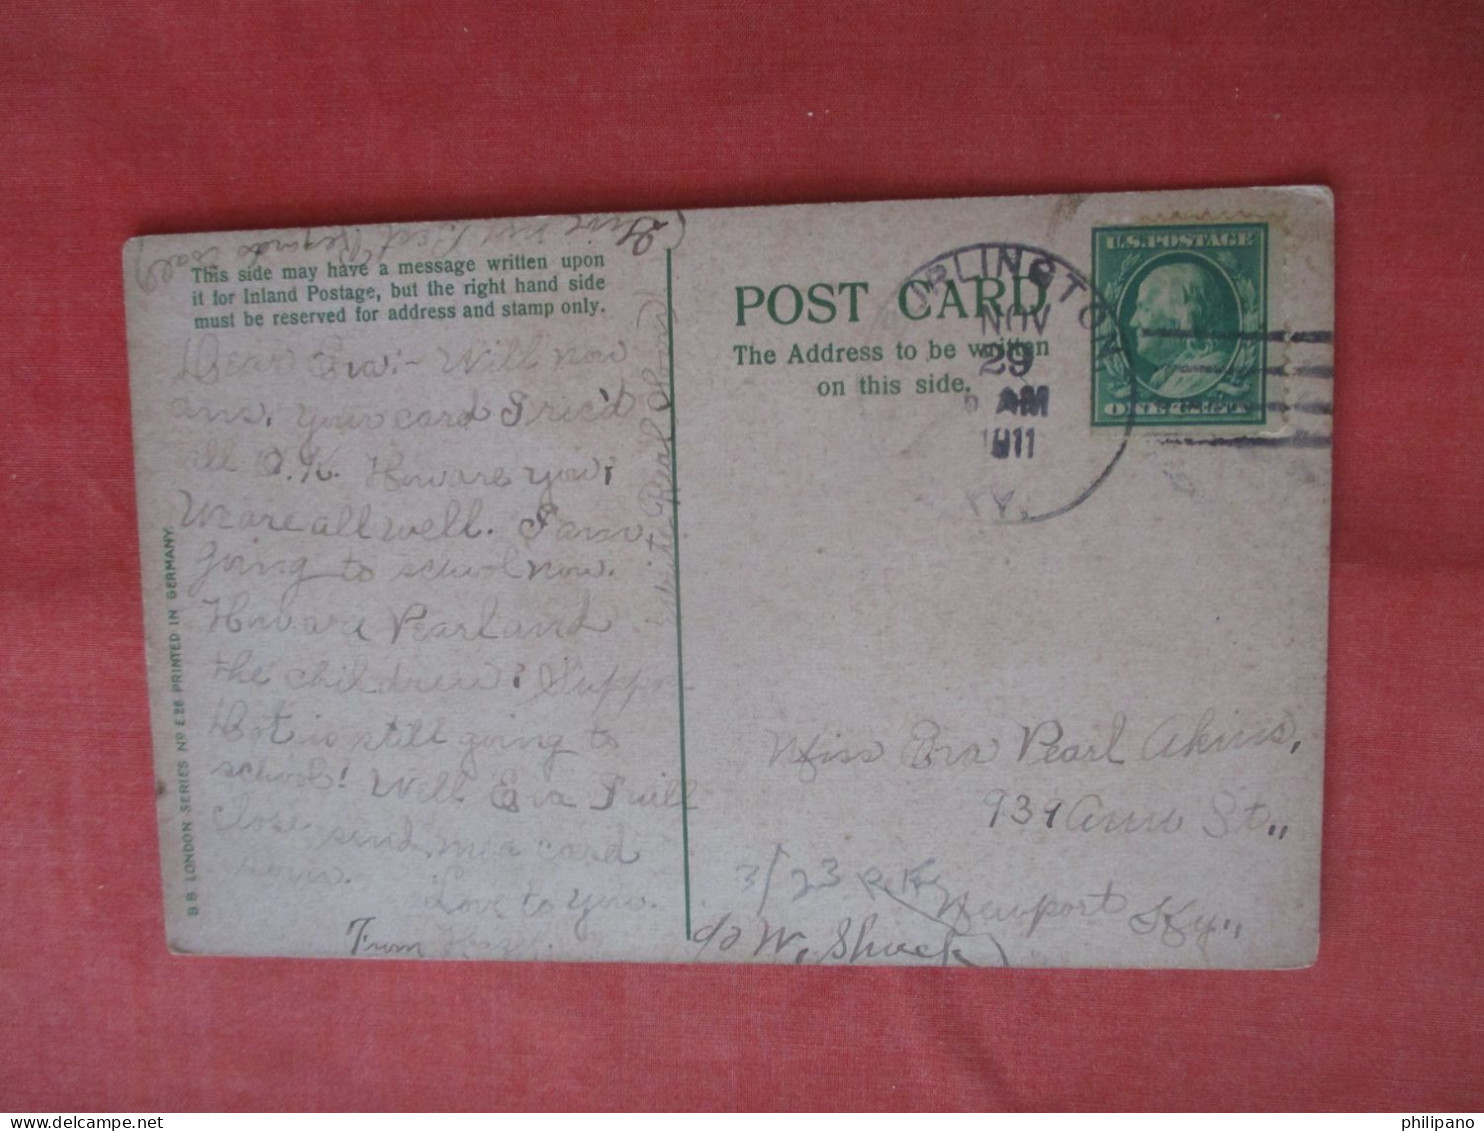 (Give my Best Regards to all)
This side may have a message written upon
it for Inland Postage, but the right hand side
must be reserved for address and stamp only.
Dear Eva:- Will now
ans. your card I rec'd
all O.K. How are you?
We are all well. I am
going to school now.
How are Pearl and
the children? Suppose
Dot is still going to
school! Well Eva I will
close, send me a card
soon.
Love to you.
From Hazel.
(Write Real Soon)
B.B. LONDON SERIES No E26 PRINTED IN GERMANY.
POST CARD
The Address to be written
on this side.
ARLINGTON
NOV
29
6 AM
1911
KY.
U.S. POSTAGE
ONE CENT
Miss Eva Pearl Akins,
939 Ann St.,
3/23 R.H.
Newport Ky.,
c/o W. Shuck
philipano